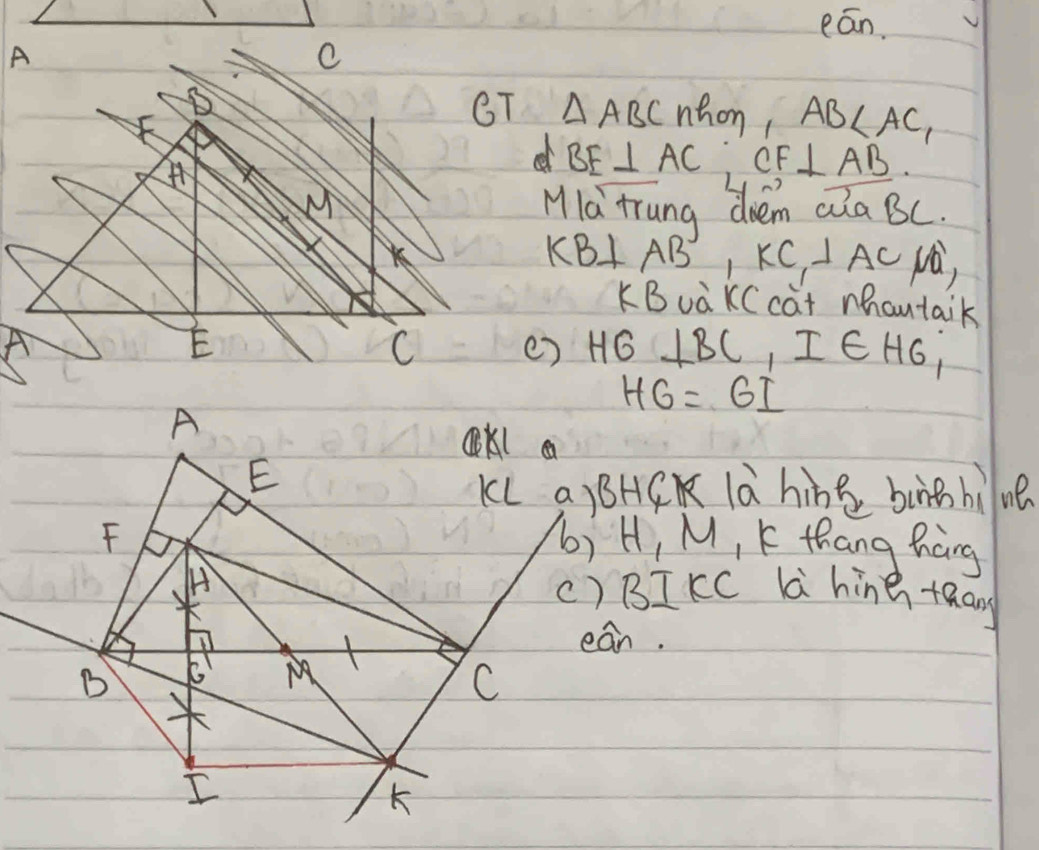 cân.
A C
B
F
H
M
K
A E C
GT △ABC nhọn, AB < AC,
BE ⊥ AC, CF ⊥ AB.
M là trung điểm của BC.
KB ⊥ AB, KC ⊥ AC và,
KB và KC cắt nhau tại K
c) HG ⊥ BC, I ∈ HG,
HG = GI
KL a) BHCK là hình bình hình
b) H, M, K thẳng hàng
c) BIKC là hình thang
cân.
A
E
F
H
B G M C
I K